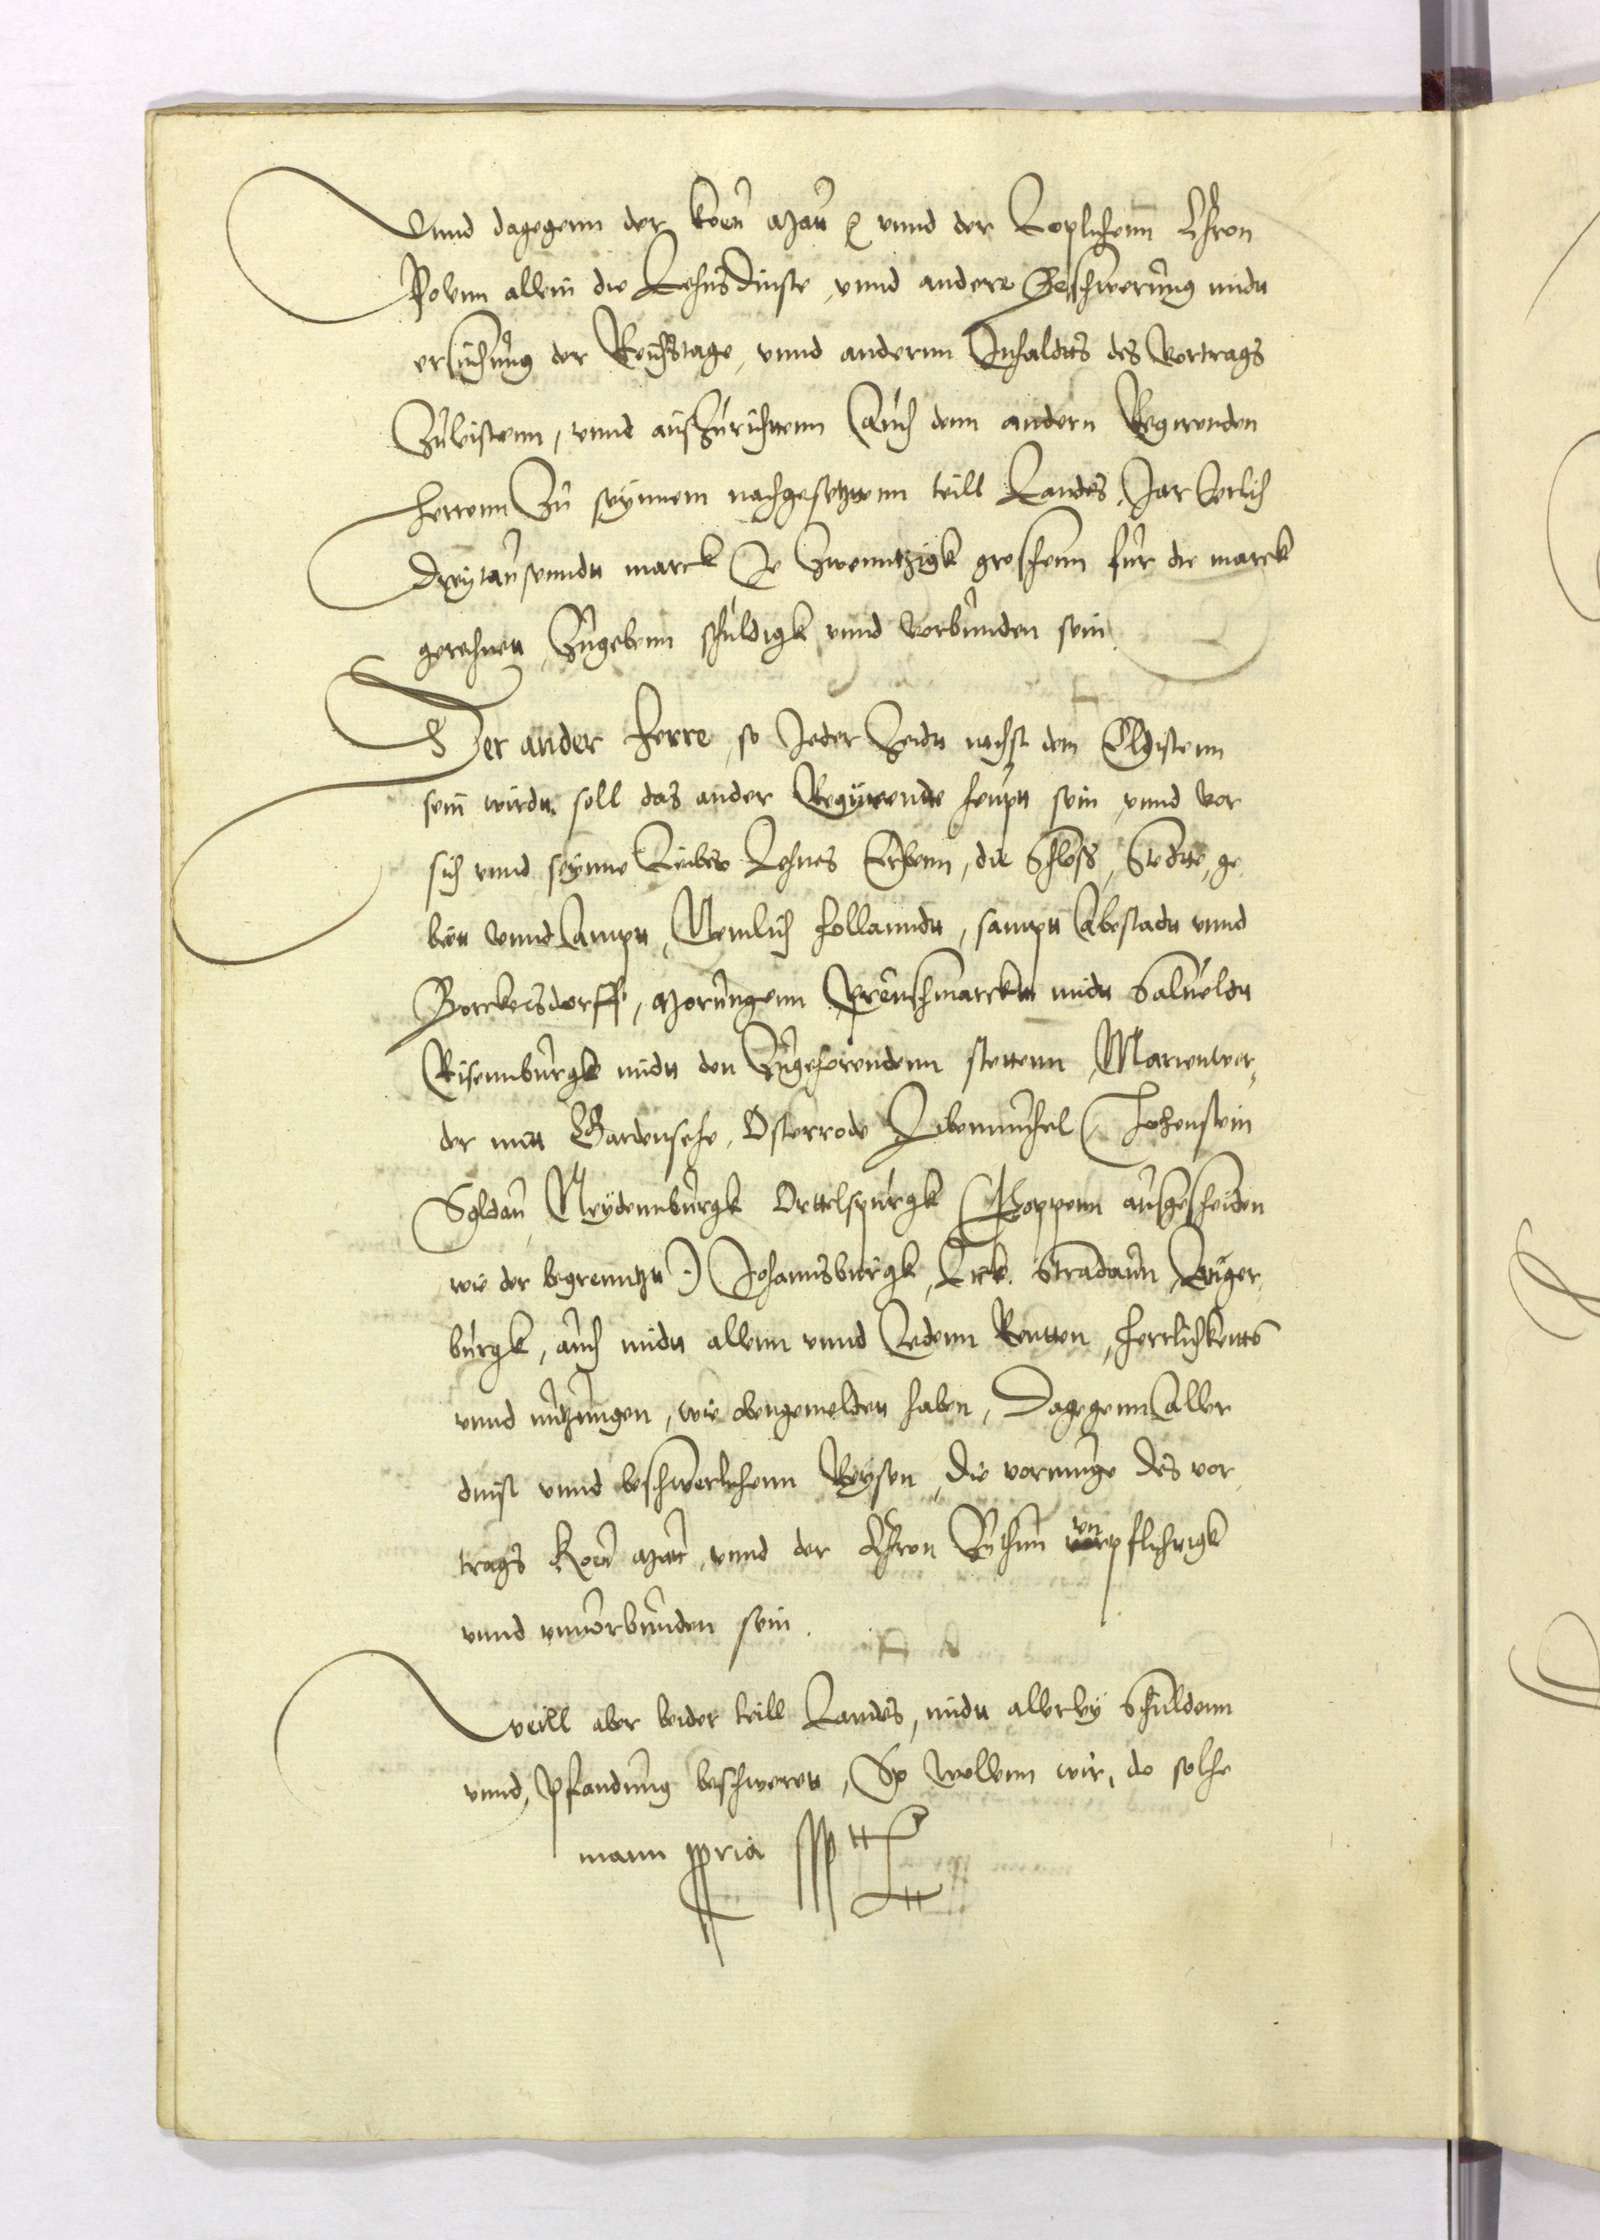 Vnnd dagegenn der koen Matt vnnd der Loplichenn Chron
Polenn allein die Lehnsdinste, vnnd andere Beschwerung midtt
ersuchung der Reichstage, vnnd andernn Inhaldtts des Vortrags
Zuleistenn, vnnd auszurichttenn Auch denn andern Regirenden
herrenn Zu seynnem nachgesetzttenn teill Landes, Jar Jerlich
dreytausenndtt marck Je Zwenntzigk groschenn fur die marck
gerechnett, Zugebenn schuldigk vnnd vorbunden sein.
Der ander Herre, so Jeder Zeidtt nachst dem Eldistenn
sein wirdtt. soll das ander Regirende heuptt sein, vnnd vor
sich vnnd seynne Leibes Lehnes Erbenn, die Schloss, Stedtte, ge
biett vnnd Ampt, Nemlich hollanndtt, samptt Libestadtt vnnd
Borckersdorff, Morungenn Preuschmarcktt midtt Salueldtt
Risennburgk midtt den Zugehorendenn stettenn, Marienwer,
der mitt Gardensehe, Osterrode Libemuhel, Hohenstein
Soldau, Neydennburgk Ortelspurgk (Choppenn ausgescheiden
wie der begrenntzt) Johannsburgk, Lick. Stradaun, Anger,
burgk, auch midtt allenn vnnd Jedenn Rentten, herrlichkeitts
vnnd nutzungen, wie obengemeldett haben, Dagegenn Aller
dinst vnnd beschwerlichenn Reysen, die vormuge des vor,
trags Koen Matt, vnnd der Chron Zuthun vnpflichtigk
vnnd vnuorbunden sein.
Weill aber beider teill Landes, midtt allerley Schuldenn
vnnd, Pfandung beschwertt, So wollenn wir, do solche
mann ppria